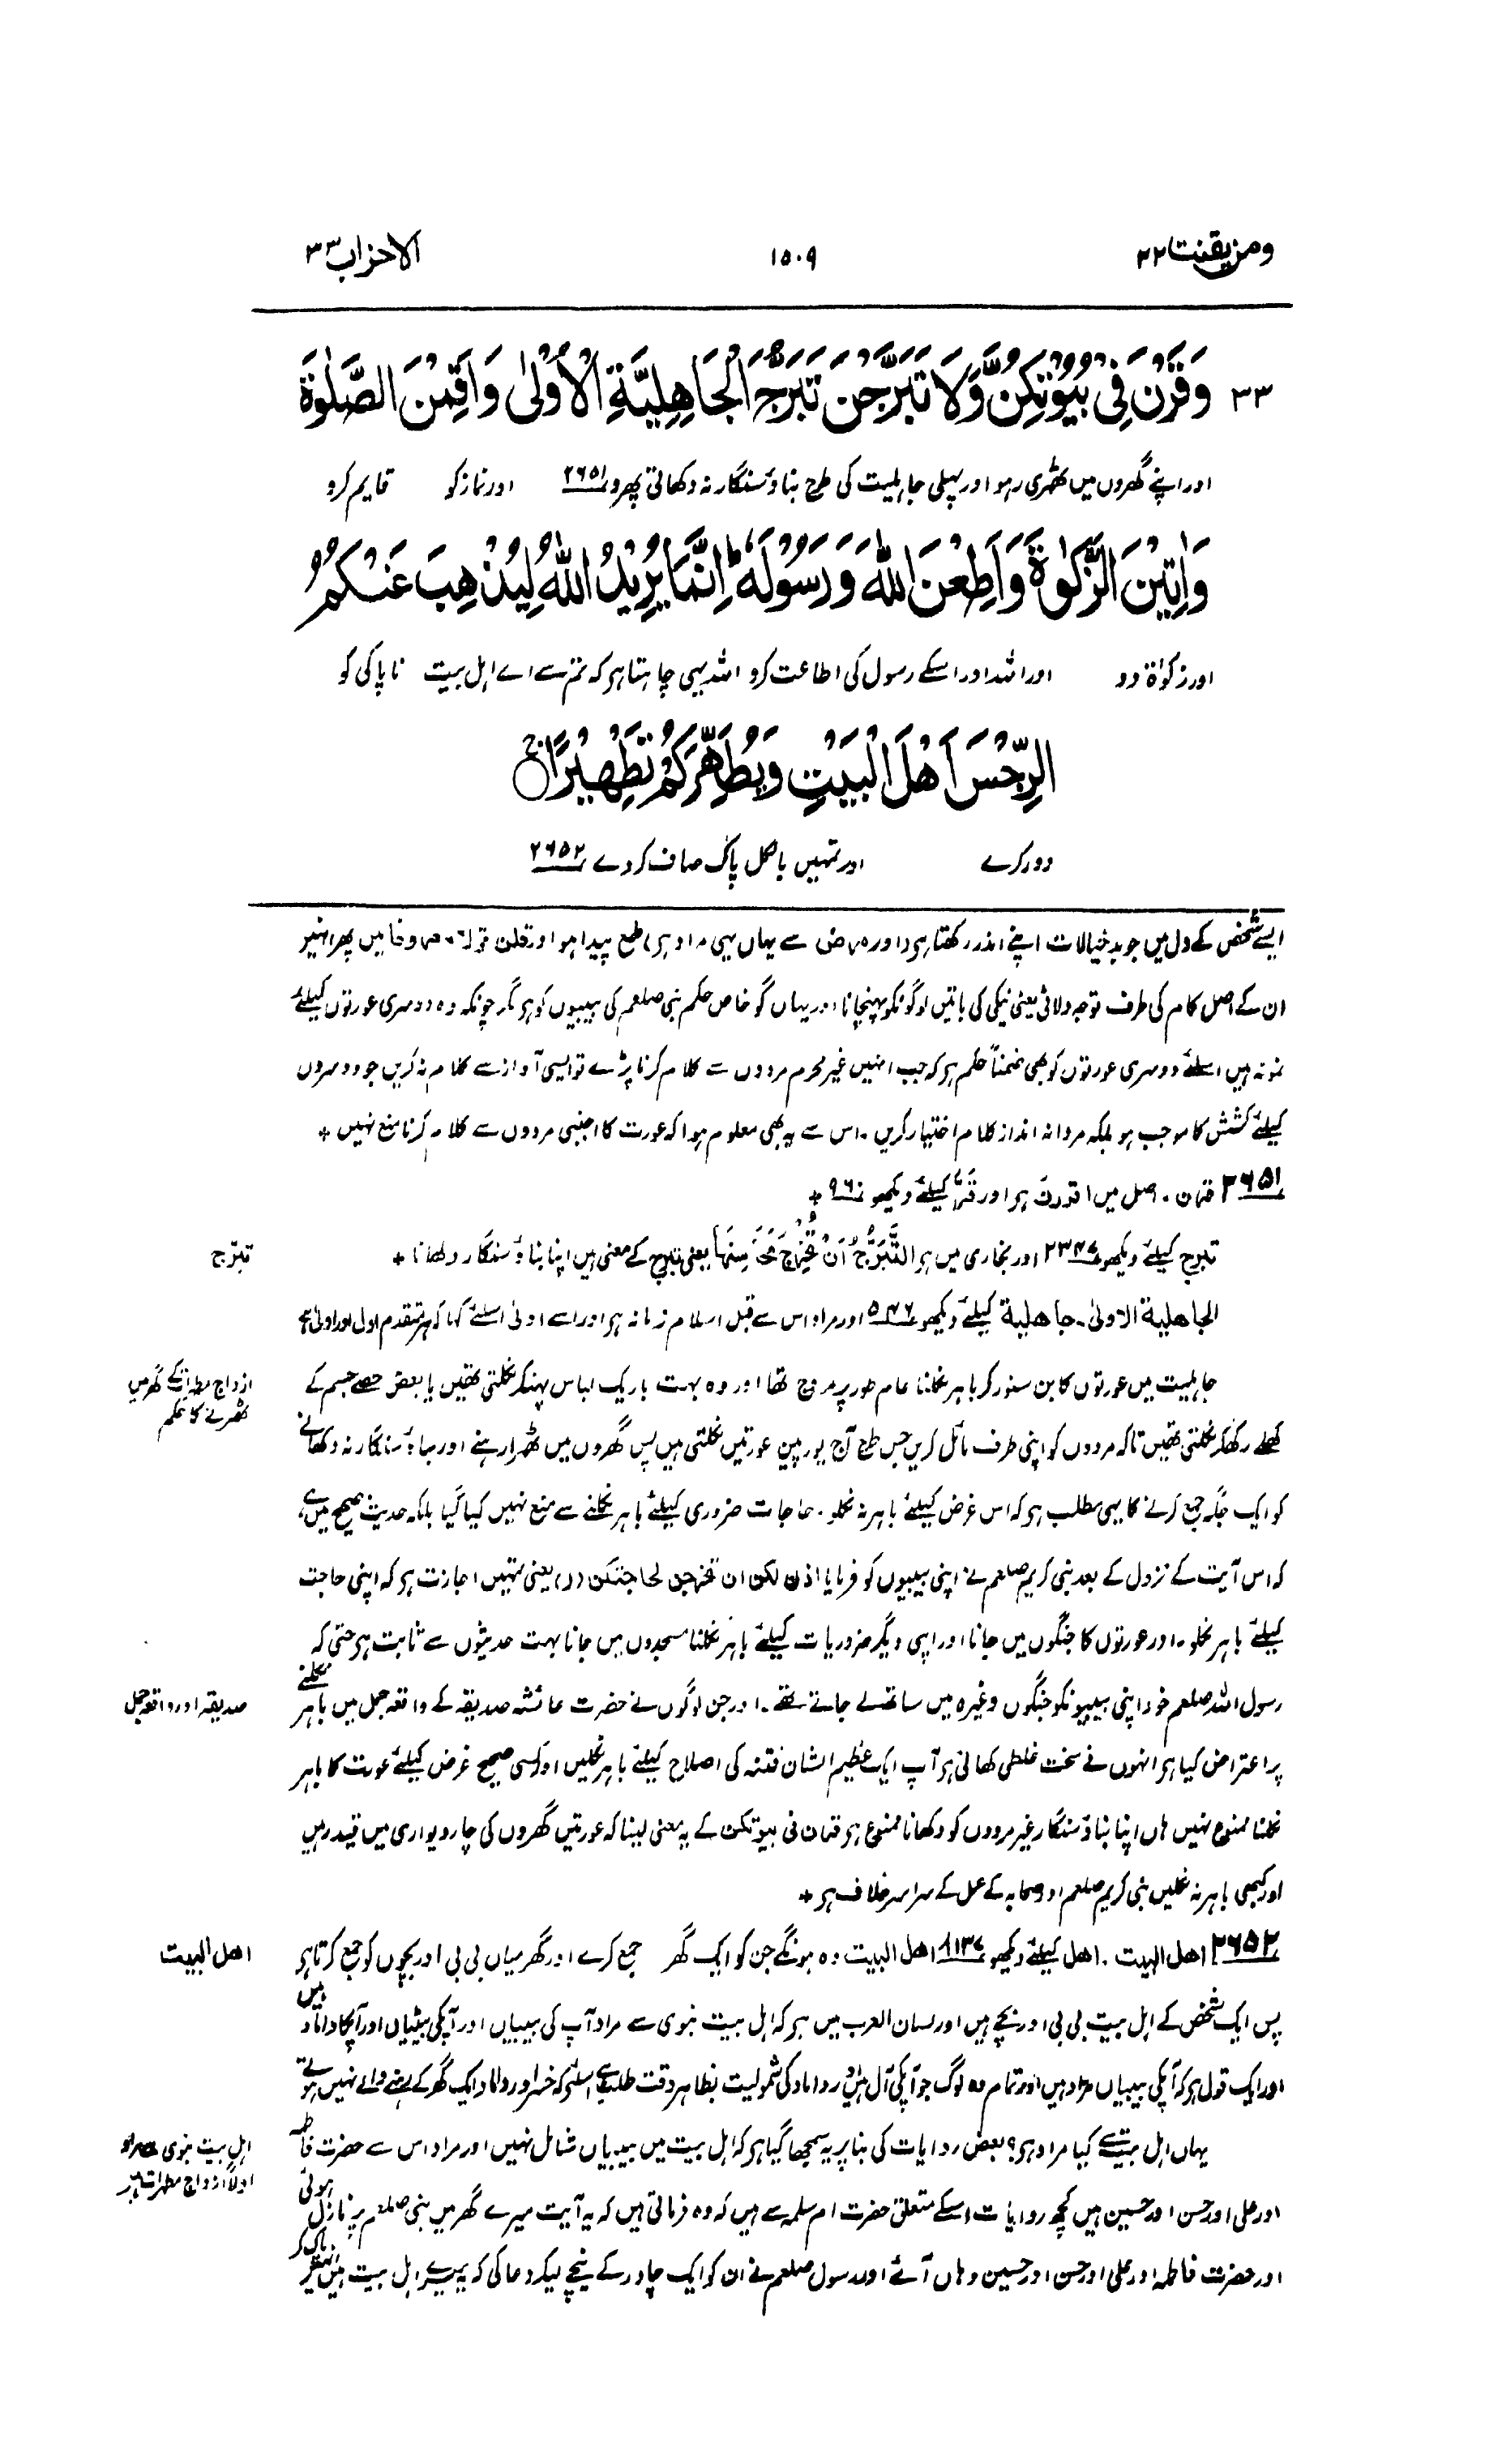 ومن یقنت ۲۲
۱۵۰۹
الاحزاب ۳۳
۳۳ وَقَرْنَ فِيْ بُيُوْتِكُنَّ وَلَا تَبَرَّجْنَ تَبَرُّجَ الْجَاهِلِيَّةِ الْاُوْلٰى وَاَقِمْنَ الصَّلٰوةَ
اور اپنے گھروں میں ٹھہری رہو اور پہلی جاہلیت کی طرح بناؤ سنگار نہ دکھاتی پھرو ۲۶۵۱ اور نماز کو قایم کرو
وَاٰتِيْنَ الزَّكٰوةَ وَاَطِعْنَ اللّٰهَ وَرَسُوْلَهٗ ؕ اِنَّمَا يُرِيْدُ اللّٰهُ لِيُذْهِبَ عَنْكُمُ
اور زکوٰۃ دو اور اللہ اور اسکے رسول کی اطاعت کرو اللہ یہی چاہتا ہے کہ تم سے اے اہل بیت ناپاکی کو
الرِّجْسَ اَهْلَ الْبَيْتِ وَيُطَهِّرَكُمْ تَطْهِيْرًا ۚ
دور کرے اور تمہیں بالکل پاک صاف کردے ۲۶۵۲
ایسے شخص کے دل میں جو بد خیالات اپنے اندر رکھتا ہو (اور مرض سے یہاں یہی مراد ہے) طمع پیدا ہو اور قلن قولا معروفا میں پھر انہیں
ان کے اصل کام کی طرف توجہ دلائی یعنی نیکی کی باتیں لوگونکو پہنچانا اور یہاں گو خاص حکم نبی صلعم کی بیبیوں کو ہے مگر چونکہ وہ دوسری عورتوں کیلئے
نمونہ ہیں اسلئے دوسری عورتوں کو بھی ضمناً حکم ہے کہ جب انہیں غیر محرم مردوں سے کلام کرنا پڑے تو ایسی آواز سے کلام نہ کریں جو دوسروں
کیلئے کشش کا موجب ہو بلکہ مردانہ انداز کلام اختیار کریں ۔ اس سے یہ بھی معلوم ہوا کہ عورت کا اجنبی مردوں سے کلام کرنا منع نہیں +
۲۶۵۱ قرن ۔ اصل میں اقررن ہے اور قرّ کیلئے دیکھو ۹۶ +
تبرج کیلئے دیکھو ۲۳۴۷ اور بخاری میں ہے التَّبَرُّجُ اَنْ تُخْرِجَ مَحَاسِنَهَا یعنی تبرج کے معنی ہیں اپنا بناؤ سنگار دکھانا +
تبرّج
الجاهلية الاولیٰ ۔ جاهلية کیلئے دیکھو ۵۴۷ اور مراد اس سے قبل اسلام زمانہ ہے اور اسے اولیٰ اسلئے کہا کہ ہر متقدم اول اور اولیٰ ہے
جاہلیت میں عورتوں کا بن سنور کر باہر نکلنا عام طور پر مروج تھا اور وہ بہت باریک لباس پہنکر نکلتی تھیں یا بعض حصے جسم کے
ازواج مطہرات کے گھر میں
ٹھہرنے کا حکم
کھلے رکھکر نکلتی تھیں تاکہ مردوں کو اپنی طرف مائل کریں جس طرح آج یورپین عورتیں نکلتی ہیں پس گھروں میں ٹھہرا رہنے اور بناؤ سنگار نہ دکھانے
کو ایک جگہ جمع کرنے کا یہی مطلب ہے کہ اس غرض کیلئے باہر نہ نکلو ۔ حاجات ضروری کیلئے باہر نکلنے سے منع نہیں کیا گیا بلکہ حدیث صحیح میں ہے
کہ اس آیت کے نزول کے بعد نبی کریم صلعم نے اپنی بیبیوں کو فرمایا اذن لکن ان تخرجن لحاجتکن (ر) یعنی تمہیں اجازت ہے کہ اپنی حاجت
کیلئے باہر نکلو ۔ اور عورتوں کا جنگوں میں جانا اور اپنی دیگر ضروریات کیلئے باہر نکلنا مسجدوں میں جانا بہت حدیثوں سے ثابت ہے حتٰی کہ
رسول اللہ صلعم خود اپنی بیبیونکو جنگوں وغیرہ میں ساتھ لے جاتے تھے ۔ اور جن لوگوں نے حضرت عائشہ صدیقہ کے واقعہ جمل میں باہر نکلنے
صدیقہ اور واقعہ جمل
پر اعتراض کیا ہے انہوں نے سخت غلطی کھائی ہے آپ ایک عظیم الشان فتنہ کی اصلاح کیلئے باہر نکلیں اور کسی صحیح غرض کیلئے عورت کا باہر
نکلنا ممنوع نہیں ہاں اپنا بناؤ سنگار غیر مردوں کو دکھانا ممنوع ہے قرن فی بیوتکن کے یہ معنی لینا کہ عورتیں گھروں کی چار دیواری میں قید رہیں
اور کبھی باہر نہ نکلیں نبی کریم صلعم اور صحابہ کے عمل کے سراسر خلاف ہے +
۲۶۵۲ اھل البیت ۔ اھل کیلئے دیکھو ۱۱۳۷ اھل البیت وہ ہونگے جن کو ایک گھر جمع کرے اور گھر میاں بی بی اور بچوں کو جمع کرتا ہے
اھل البیت
پس ایک شخص کے اہل بیت بی بی اور بچے ہیں اور لسان العرب میں ہے کہ اہل بیت نبوی سے مراد آپ کی بیبیاں اور آپکی بیٹیاں اور آپکا داماد ہیں
اور ایک قول ہے کہ آپکی بیبیاں مراد ہیں اور تمام وہ لوگ جو آپکی آل ہیں اور داماد کی شمولیت بظاہر دقت طلب ہے اسلئے کہ خسر اور داماد ایک گھر کے رہنے والے نہیں ہوتے
یہاں اہل بیت سے کیا مراد ہے؟ بعض روایات کی بنا پر یہ سمجھا گیا ہے کہ اہل بیت میں بیبیاں شامل نہیں اور مراد اس سے حضرت فاطمہ
اہل بیت نبوی سے مراد
اولاً ازواج مطہرات ہیں
اور علی اور حسن اور حسین ہیں کچھ روایات اسکے متعلق حضرت ام سلمہ سے ہیں کہ وہ فرماتی ہیں کہ یہ آیت میرے گھر میں نبی صلعم پر نازل ہوئی
اور حضرت فاطمہ اور علی اور حسن اور حسین وہاں آئے اور رسول صلعم نے ان کو ایک چادر کے نیچے لیکر دعا کی کہ یہ میرے اہل بیت ہیں انہیں پاک کر